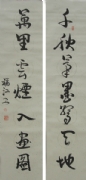 千秋筆墨驚天地
萬里雲煙入畫圖